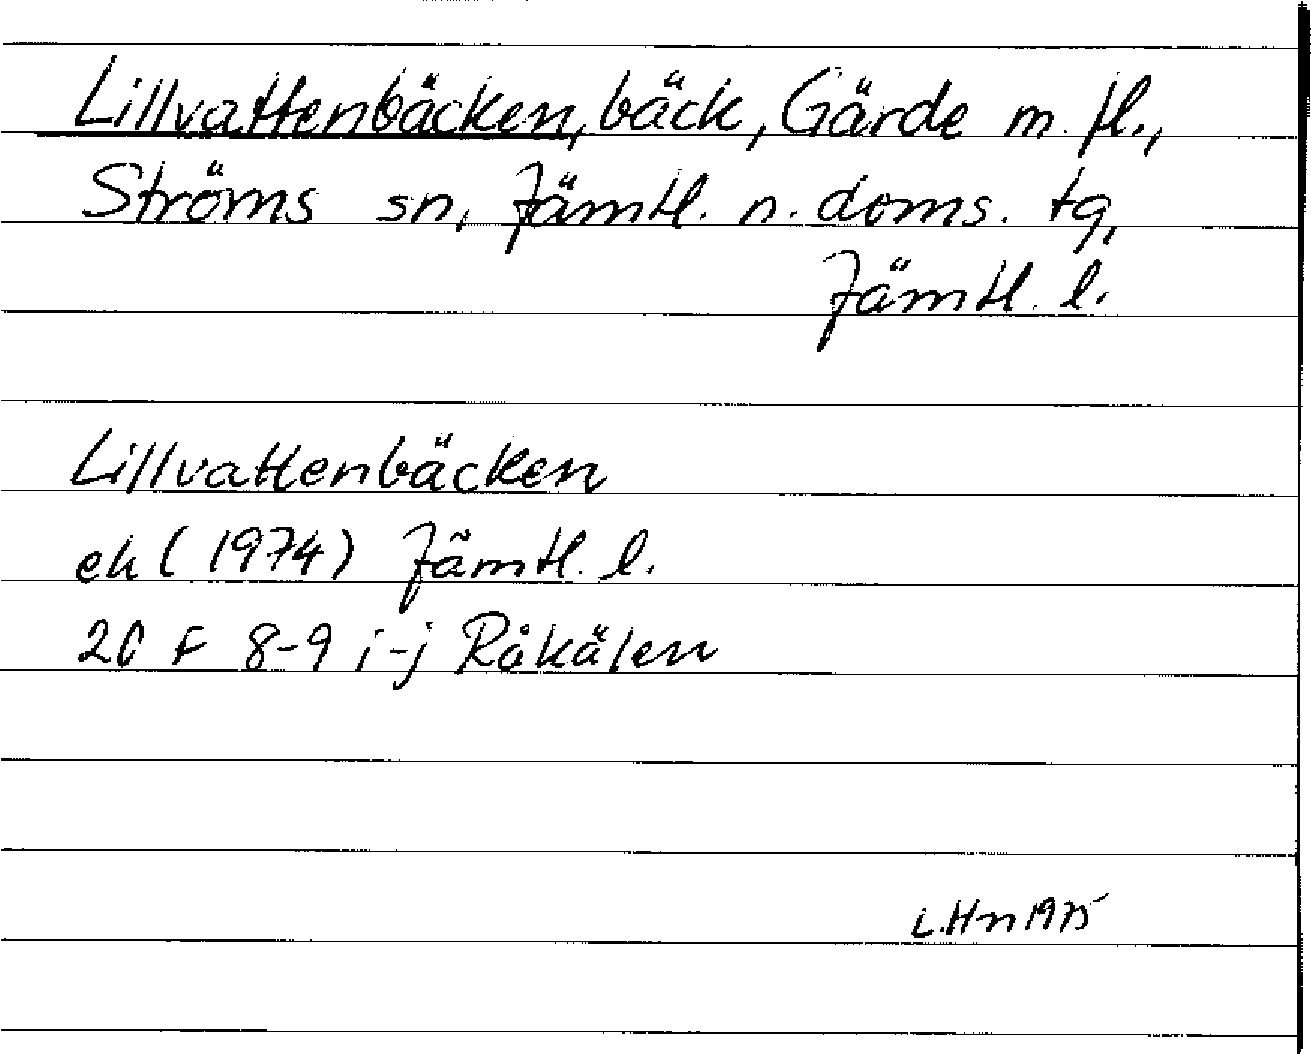 Lillvattenbäcken, bäck, Gärde m. fl.,
Ströms sn, Jämtl. n. doms. tg,
Jämtl. l.
Lillvattenbäcken
ek (1974) Jämtl. l.
20 F 8-9 i-j Råkälen
L.Hn 1975